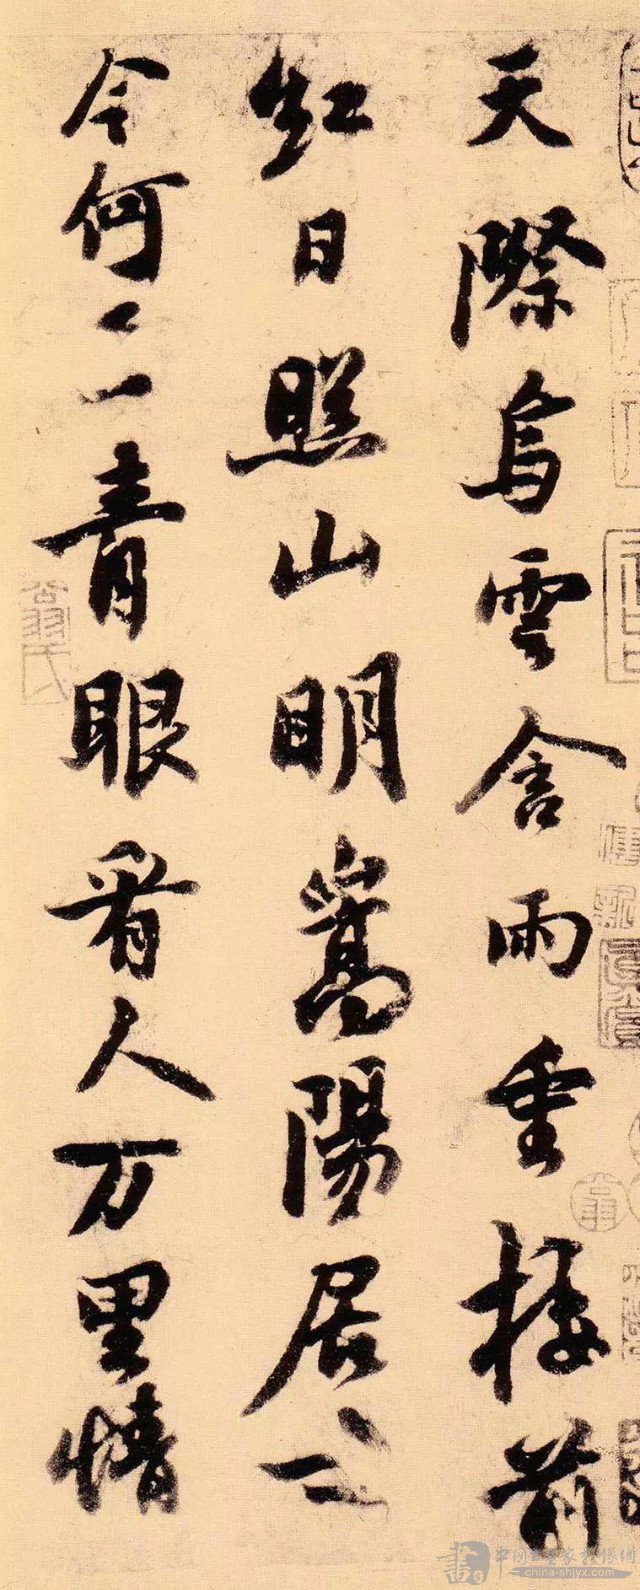 天際烏雲含雨重樓前
紅日照山明嵩陽居士
今何在青眼看人万里情
china-shjyx.com